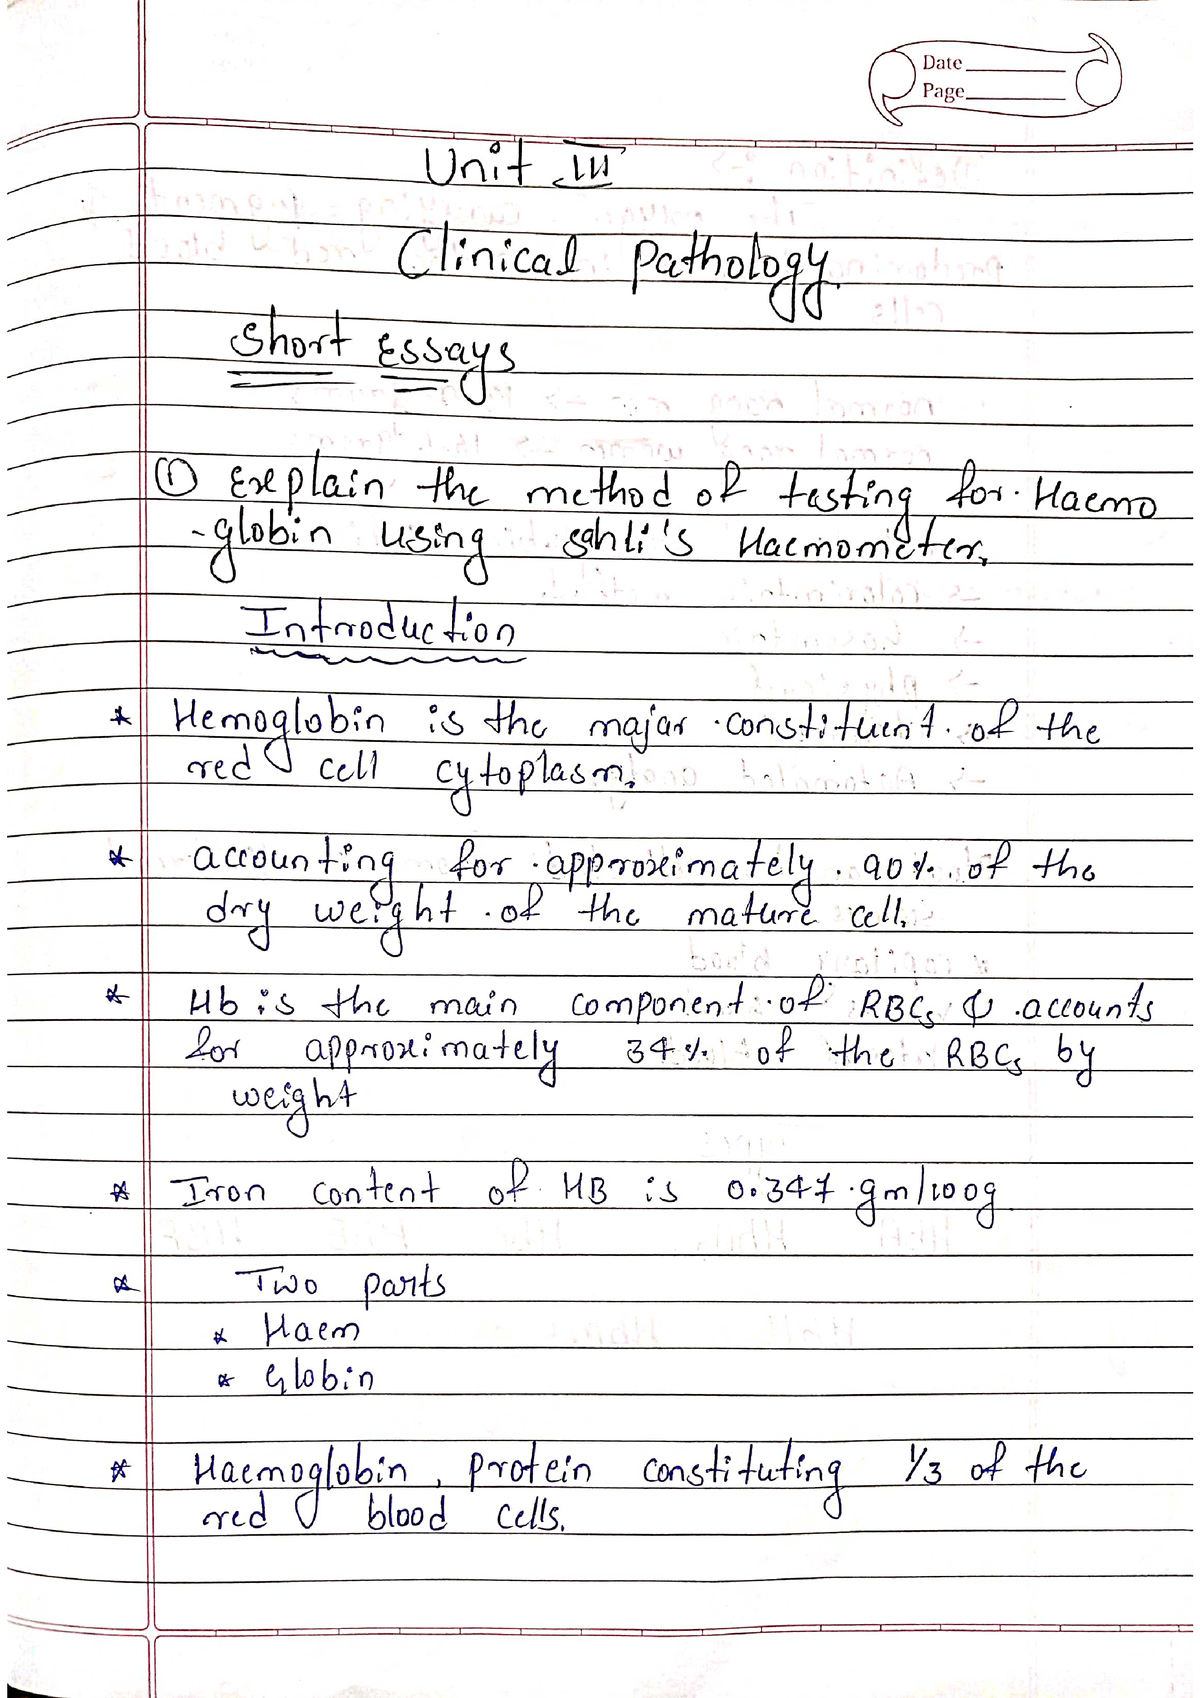 Date
Page
Unit III
Clinical Pathology.
Short Essays
① Explain the method of testing for Haemo
-globin using sahli's Haemometer.
Introduction
* Hemoglobin is the majar constituent of the
red cell cytoplasm.
* accounting for approximately 90% of the
dry weight of the mature cell.
* Hb is the main component of RBCs & accounts
for approximately 34% of the RBCs by
weight
* Iron content of HB is 0.347 gm/100g
* Two parts
* Haem
* Globin
* Haemoglobin, protein constituting 1/3 of the
red blood cells.